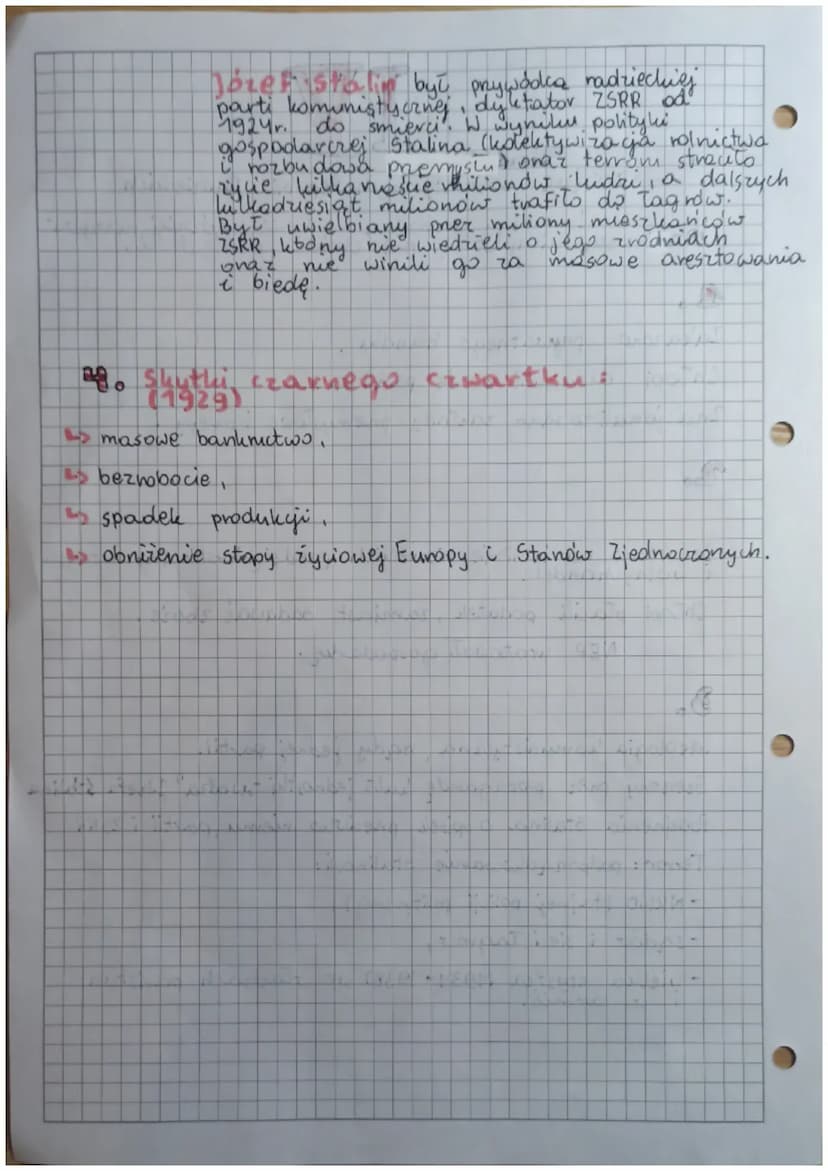 Józef Stalin był przywódcą radzieckiej
parti komunistycznej, dyktator ZSRR od
1924r. do śmierci. W wyniku polityki
gospodarczej Stalina (kolektywizacja rolnictwa
i rozbudowa przemysłu) oraz terroru straciło
życie kilkanaście milionów ludzi, a dalszych
kilkadziesiąt milionów trafiło do łagrów.
Był uwielbiany przez miliony mieszkańców
ZSRR, którzy nie wiedzieli o jego zrodniach
oraz nie winili go za masowe aresztowania
i biedę.
4. Skutki czarnego czwartku:
(1929)
↳ masowe bankructwo,
↳ bezrobocie,
↳ spadek produkcji,
↳ obniżenie stopy życiowej Europy i Stanów Zjednoczonych.